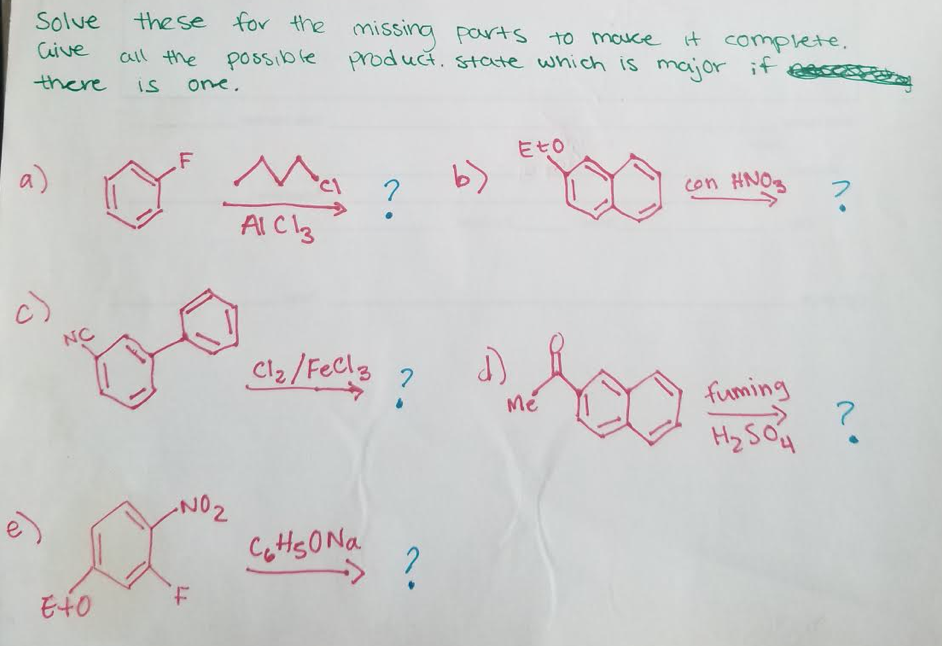 Solve these for the missing parts to make it complete.
Give all the possible product. state which is major if
there is one.
a)
F
Cl
AlCl3
?
b)
EtO
con HNO3
?
c)
NC
Cl2/FeCl3
?
d)
O
Me
fuming
H2SO4
?
e)
NO2
EtO
F
C6H5ONa
?